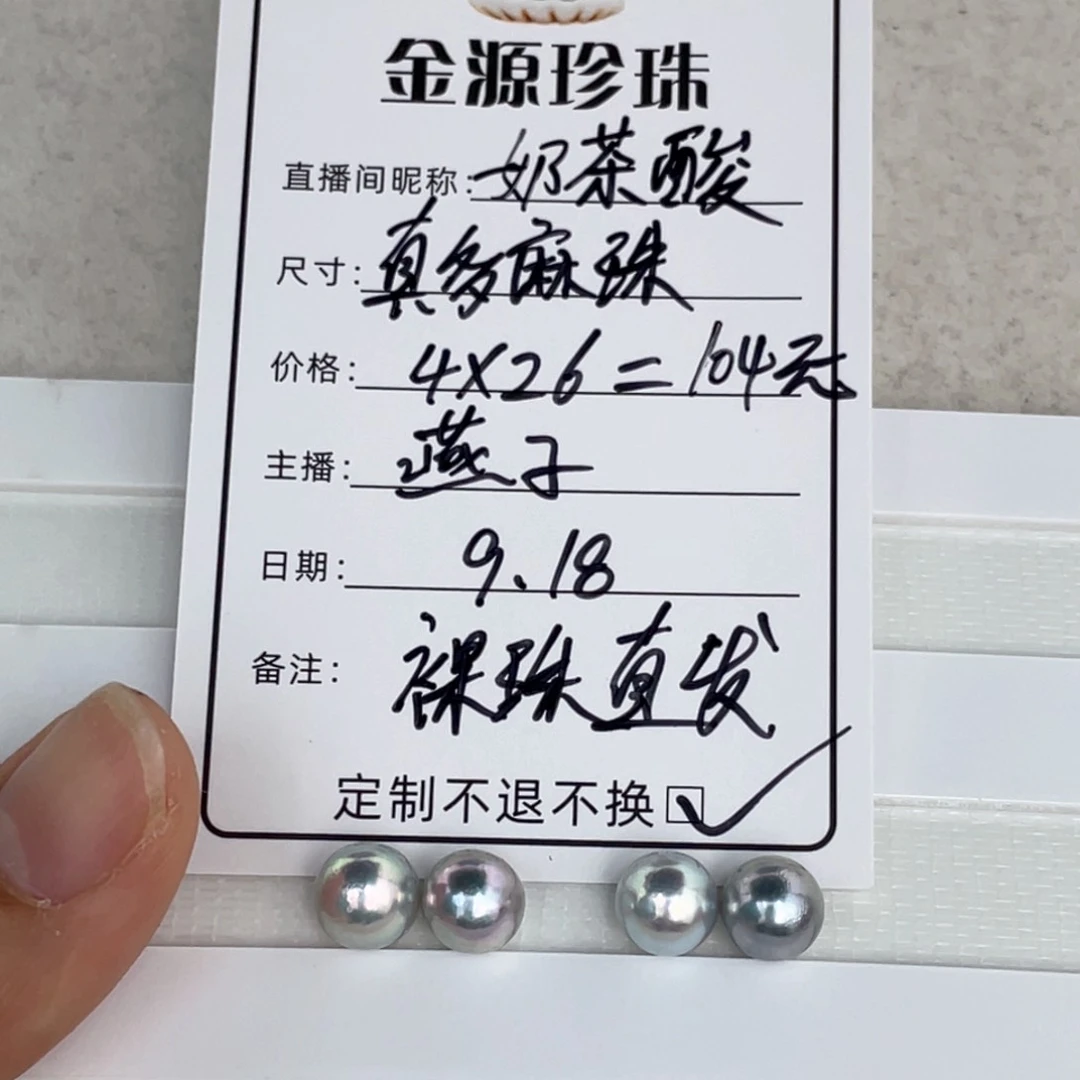 金源珍珠
直播间昵称:奶茶酸
尺寸:真多麻珠
价格:4X26=104元
主播:燕子
日期:9.18
备注:裸珠直发
定制不退不换☑